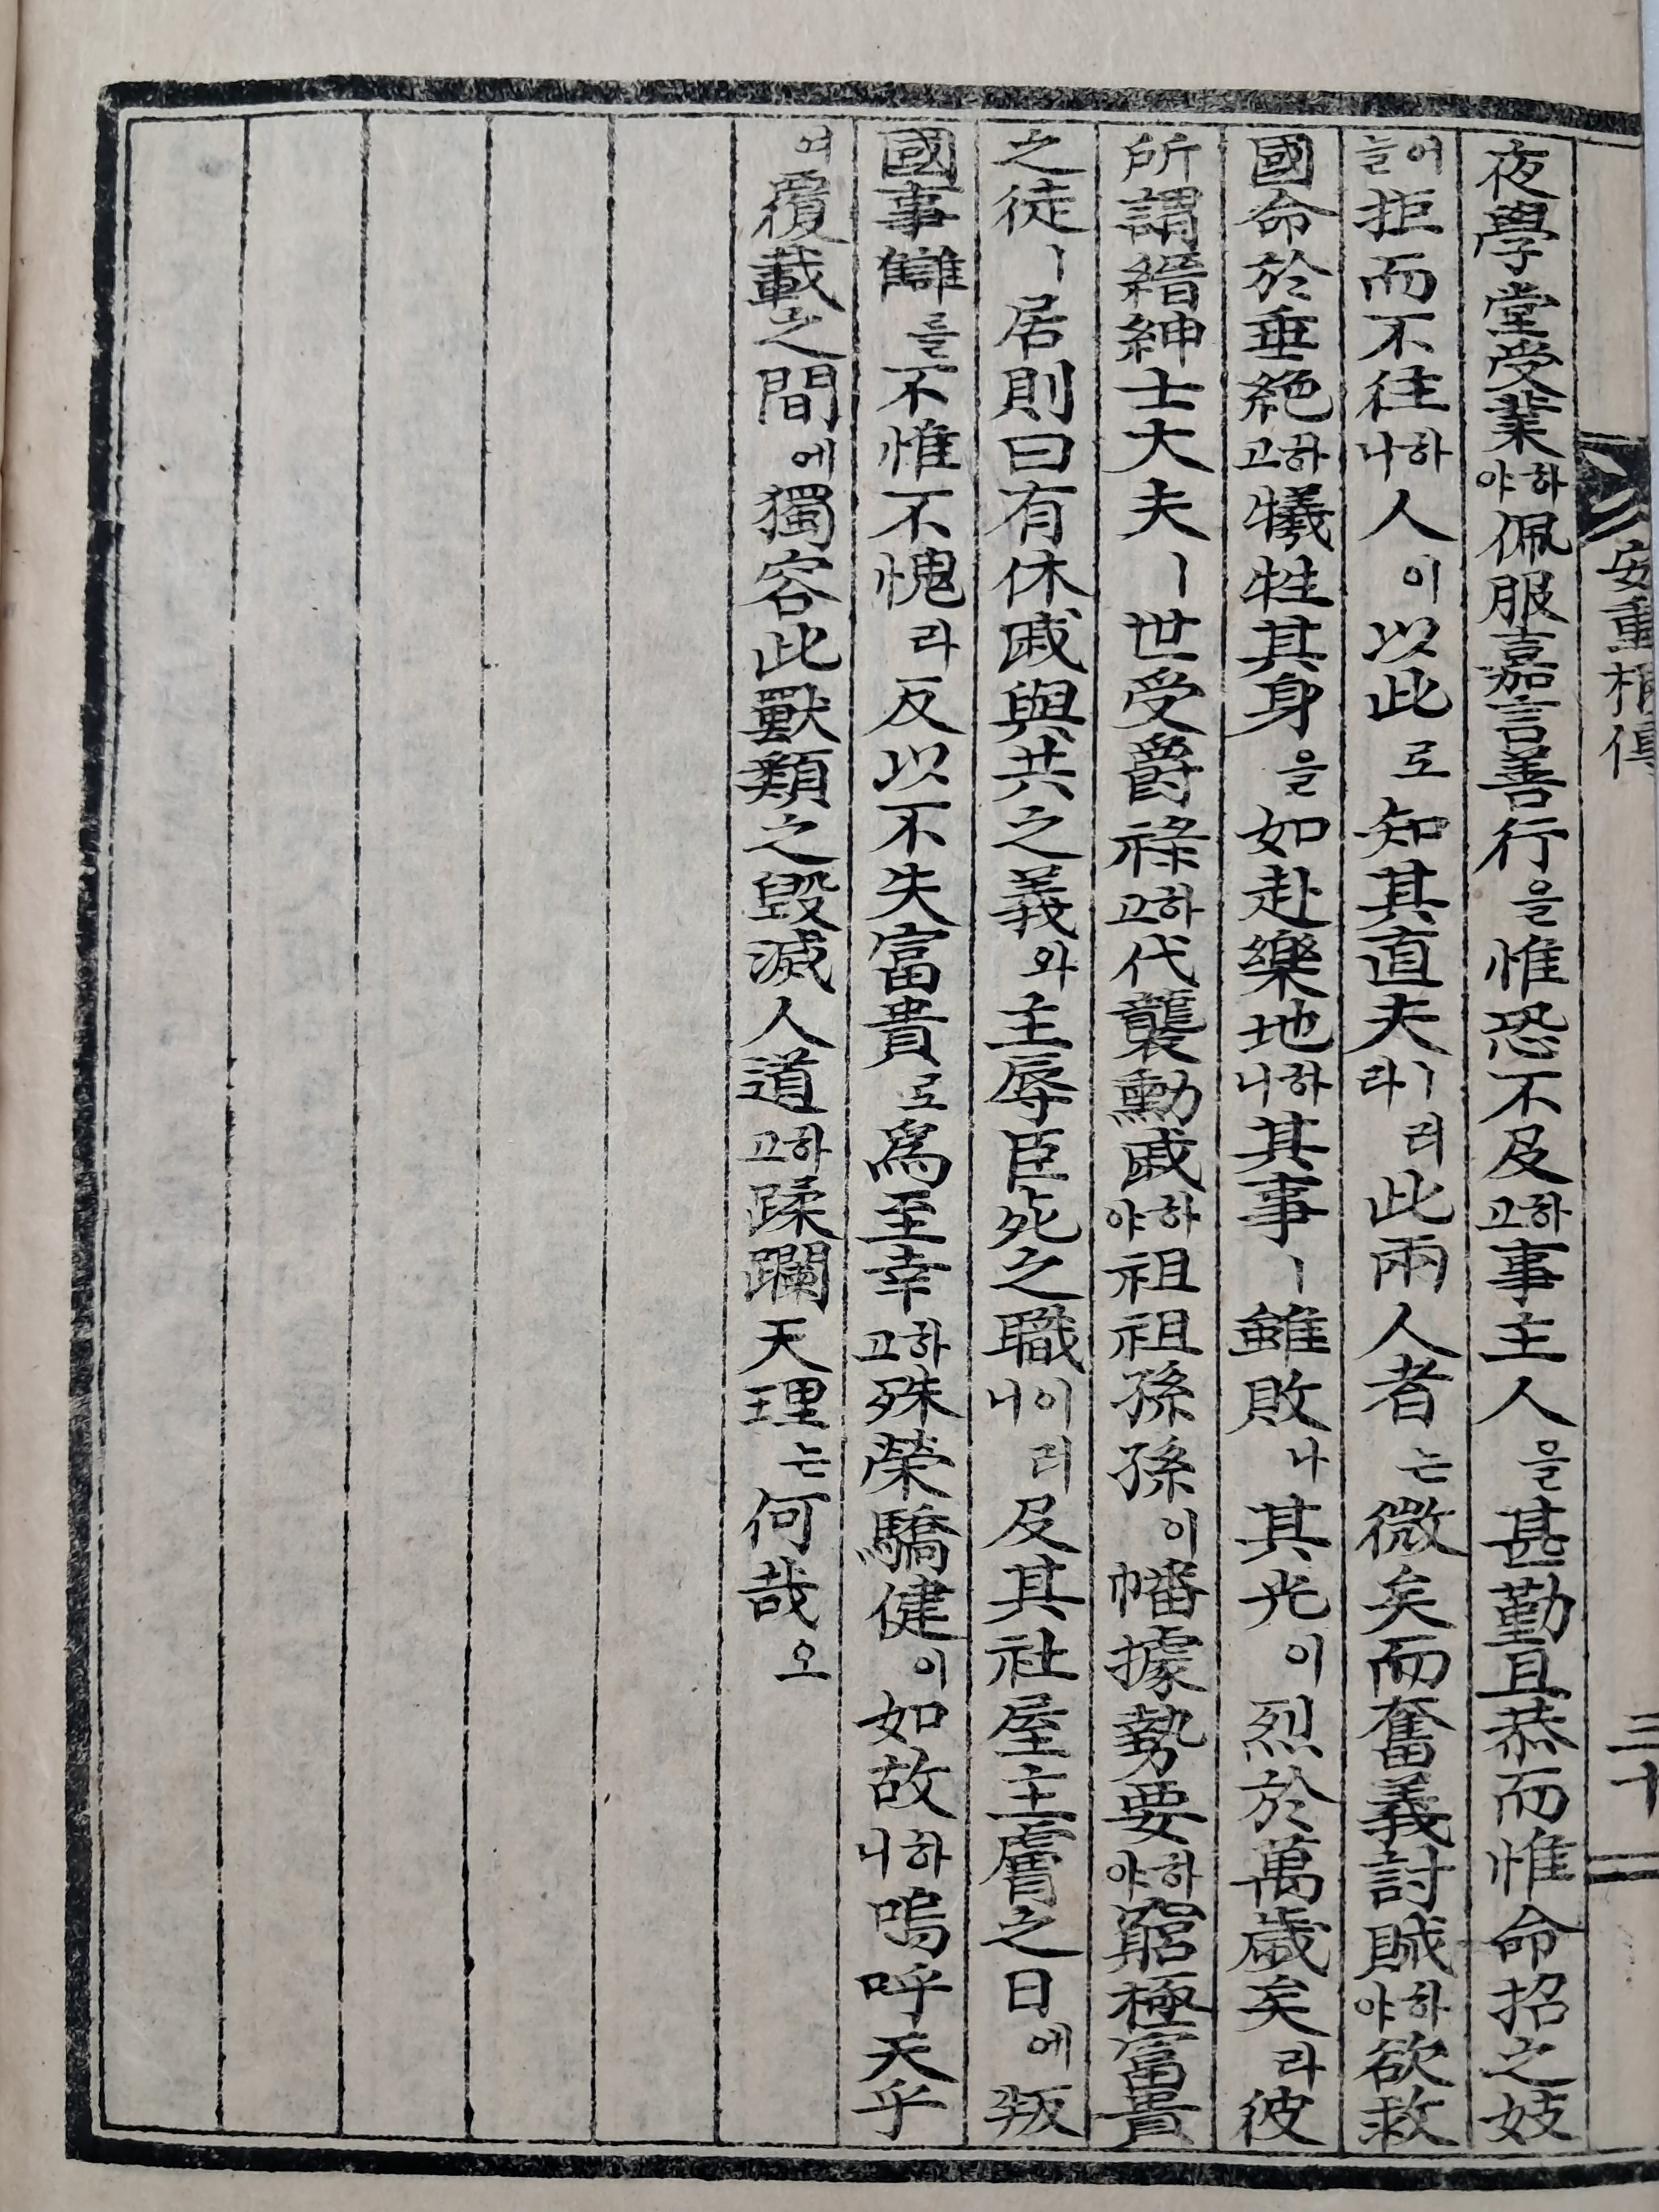 安重根傳
三十
夜學堂受業하야佩服嘉言善行을惟恐不及하고事主人을甚勤且恭而惟命招之妓
어늘拒而不往하나人이以此로知其直夫ㅣ라러此兩人者는微矣而奮義討賊하야欲救
國命於垂絕하고犧牲其身을如赴樂地하니其事ㅣ雖敗나其光이烈於萬歲矣라彼
所謂縉紳士大夫ㅣ世受爵祿하고代襲勳戚하야祖祖孫孫이幡據勢要하야窮極富貴
之徒ㅣ居則曰有休戚與共之義와主辱臣死之職이니러及其社屋主虜之日에叛
國事讎를不惟不愧라反以不失富貴로爲至幸하고殊榮驕健이如故하니嗚呼天乎
여覆載之間에獨容此獸類之毁滅人道하고蹂躪天理는何哉오